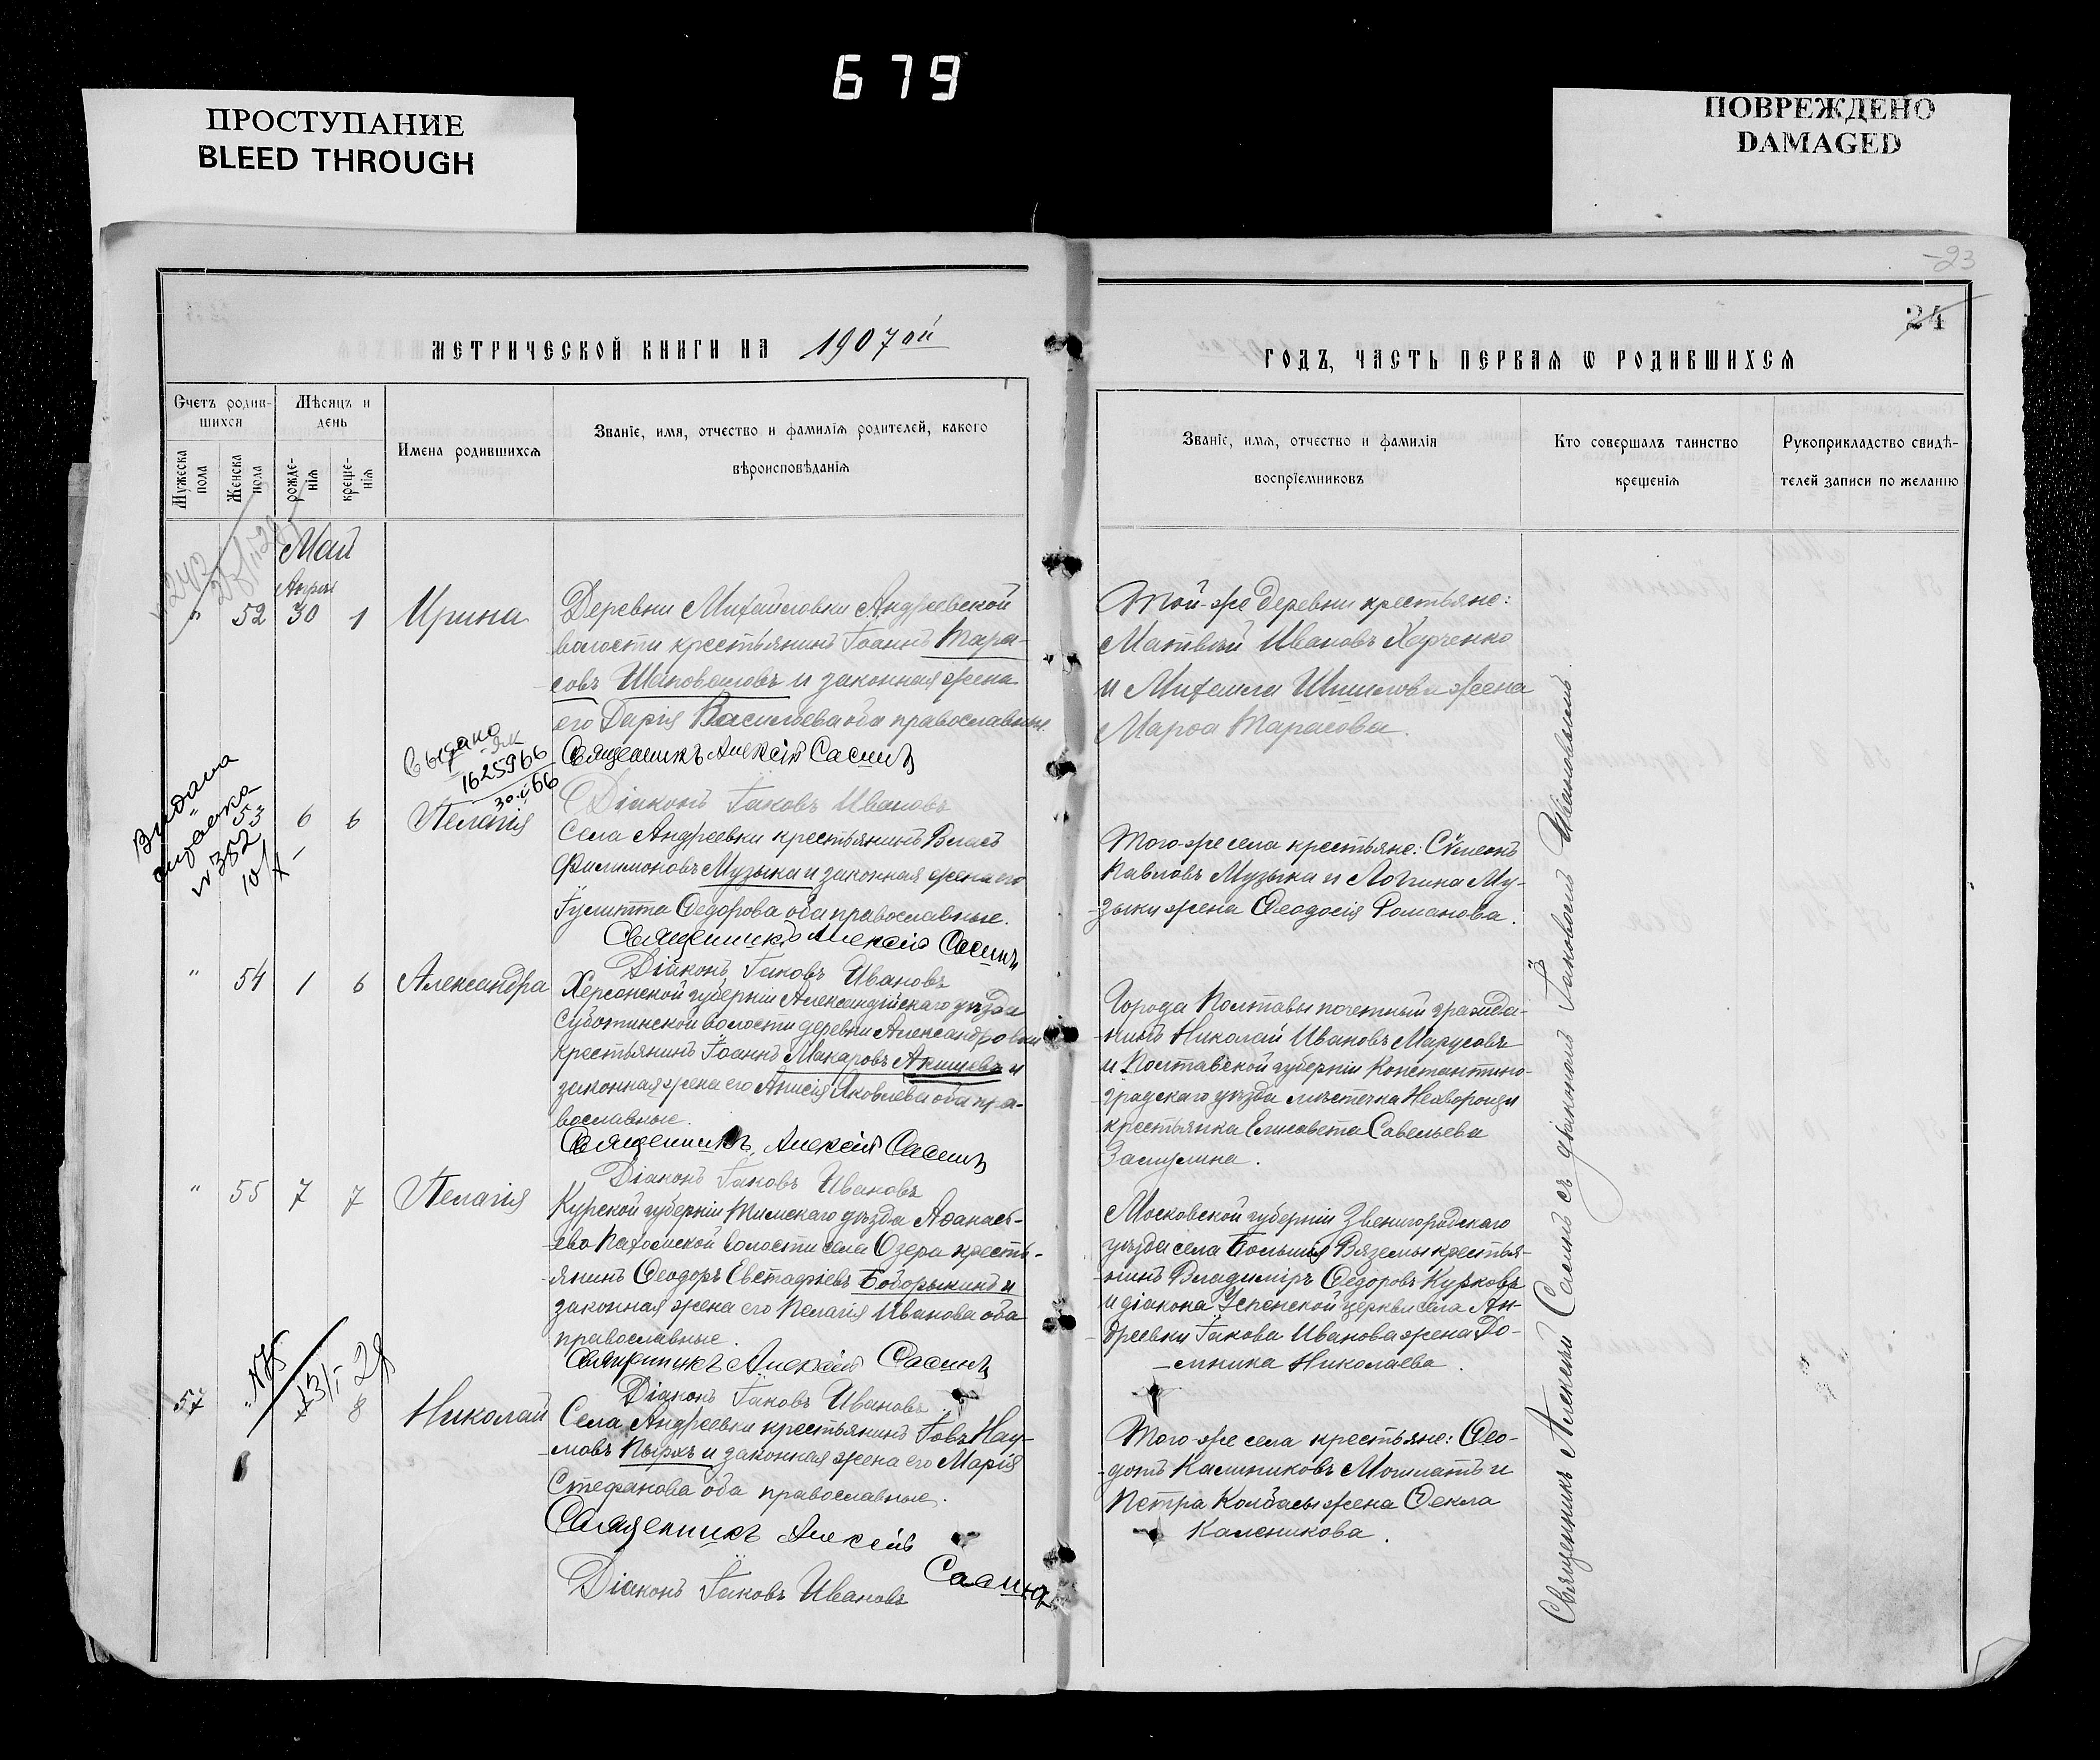 679
ПРОСТУПАНИЕ
BLEED THROUGH
ПОВРЕЖДЕНО
DAMAGED
МЕТРИЧЕСКОЙ КНИГИ НА 1907ой
Счетъ родив-
шихся
Мѣсяцъ и
день
Мужеска
пола
Женска
пола
рожде-
нія
креще-
нія
Имена родившихся
Званіе, имя, отчество и фамилія родителей, какого
вѣроисповѣданія
Май
Апрѣл
" 52 30 1 Ирина
Деревни Михайловки Андреевской
волости крестьянинъ Іоаннъ Тара-
совъ Шаповаловъ и законная жена
его Дарія Васильева оба православные.
Священникъ Алексій Сасинъ
Діаконъ Іаковъ Ивановъ
Выдано
1625966
66
Видана
№ 352
" 53 6 6 Пелагія
Села Андреевки крестьянинъ Власъ
Филимоновъ Музыка и законная жена его
Іулитта Ѳедорова оба православные.
Священникъ Алексій Сасинъ
Діаконъ Іаковъ Ивановъ
" 54 1 6 Александра
Херсонской губерніи Александрійскаго уѣзда
Суботинской волости деревни Александровки
крестьянинъ Іоаннъ Макаровъ Акишевъ и
законная жена его Анисія Яковлева оба пра-
вославные.
Священникъ Алексій Сасинъ
Діаконъ Іаковъ Ивановъ
" 55 7 7 Пелагія
Курской губерніи Тимскаго уѣзда Аѳанась-
ево Пахомской волости села Озера кресть-
янинъ Ѳеодоръ Евстафіевъ Боборыкинъ и
законная жена его Пелагія Иванова оба
православные.
Священникъ Алексій Сасинъ
Діаконъ Іаковъ Ивановъ
57 8 Николай
Села Андреевки крестьянинъ Іовъ Нау-
мовъ Пырхъ и законная жена его Марія
Стефанова оба православные.
Священникъ Алексій Сасинъ
Діаконъ Іаковъ Ивановъ
23
24
ГОДЪ, ЧАСТЬ ПЕРВАЯ Ѡ РОДИВШИХСЯ
Званіе, имя, отчество и фамилія
воспріемниковъ
Кто совершалъ таинство
крещенія
Рукоприкладство свидѣ-
телей записи по желанію
Той-же деревни крестьяне:
Матвѣй Ивановъ Харченко
и Михаила жена
Марѳа Тарасова.
Того-же села крестьяне: Сѵмеонъ
Павловъ Музыка и Логгина Му-
зыки жена Ѳеодосія Романова.
Города Полтавы почетный гражда-
нинъ Николай Ивановъ Марусовъ
и Полтавской губерніи Константино-
градскаго уѣзда мѣстечка Нехворощи
крестьянка Елисавета Савельева
Московской губерніи Звенигородскаго
уѣзда села Большія Вяземы крестья-
нинъ Владиміръ Ѳедоровъ Курковъ
и діакона Успенской церкви села Ан-
дреевки Іакова Иванова жена До-
мника Николаева.
Того-же села крестьяне: Ѳео-
дотъ Калиниковъ и
Петра Колбасы жена Ѳекла
Каленикова.
Священникъ Алексѣй Сасинъ съ діакономъ Іаковомъ Ивановымъ